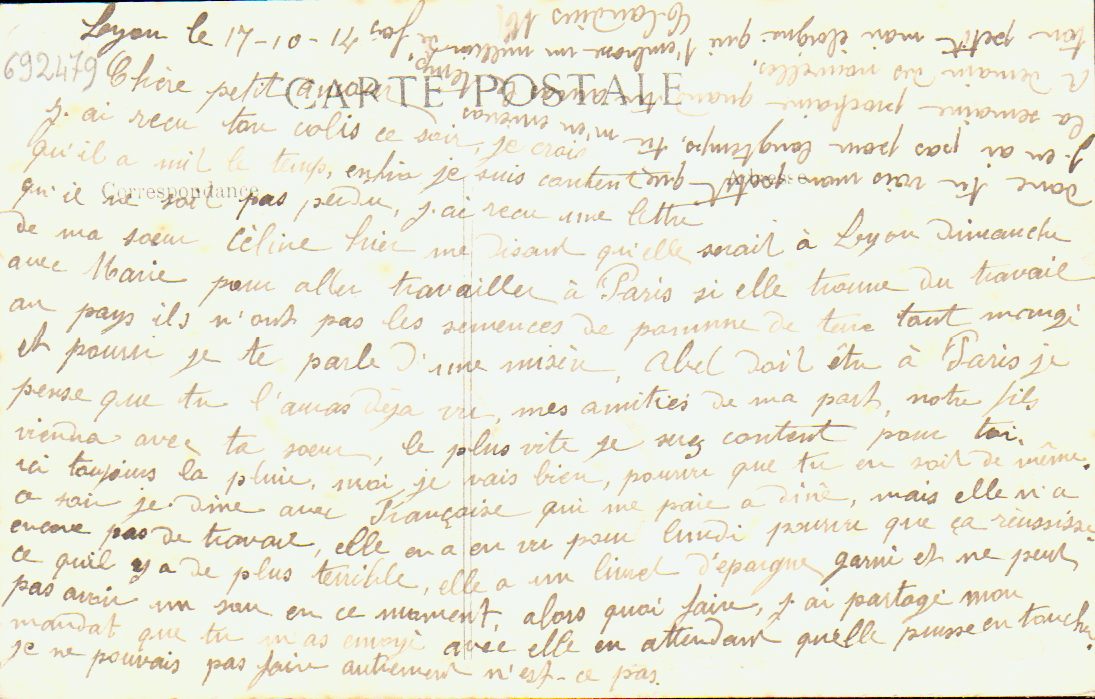 Lyon le 17-10-14
692479
CARTE POSTALE
Correspondance
Adresse
Chère petit
j. ai reçu ton colis ce soir, je crois
qu'il a mit le temps, enfin je suis content
qu'il ne soit pas perdu, j. ai reçu une lettre
de ma soeur Céline hier me disant qu'elle serait à Lyon dimanche
avec Marie pour aller travailler à Paris si elle trouve du travail
au pays ils n'ont pas les semences de pomme de terre tout mangé
et pourri je te parle d'une misère, Abel doit être à Paris je
pense que tu l'auras déjà vu, mes amitiés de ma part, notre fils
viendra avec ta soeur, le plus vite je serez content pour toi,
ici toujours la pluie, moi je vais bien, pourvu que tu en soit de même.
ce soir je dine avec Françoise qui me paie a diné, mais elle n'a
encore pas de travail, elle en a en vu pour lundi pourvu que ça réussisse
ce quil y a de plus terrible, elle a un livret d'épargne garni et ne peut
pas avoir un sou en ce moment, alors quoi faire, j. ai partagé mon
mandat que tu m'as envoyé avec elle en attendant quelle puisse en toucher.
je ne pouvais pas faire autrement n'est-ce pas.
donc tu vois mon petit que
j. en ai pas pour longtemps, tu m'en enverras
la semaine prochaine quand
A demain des nouvelles,
ton petit mari éloigné qui t'embrasse un million de
fois
Claudius